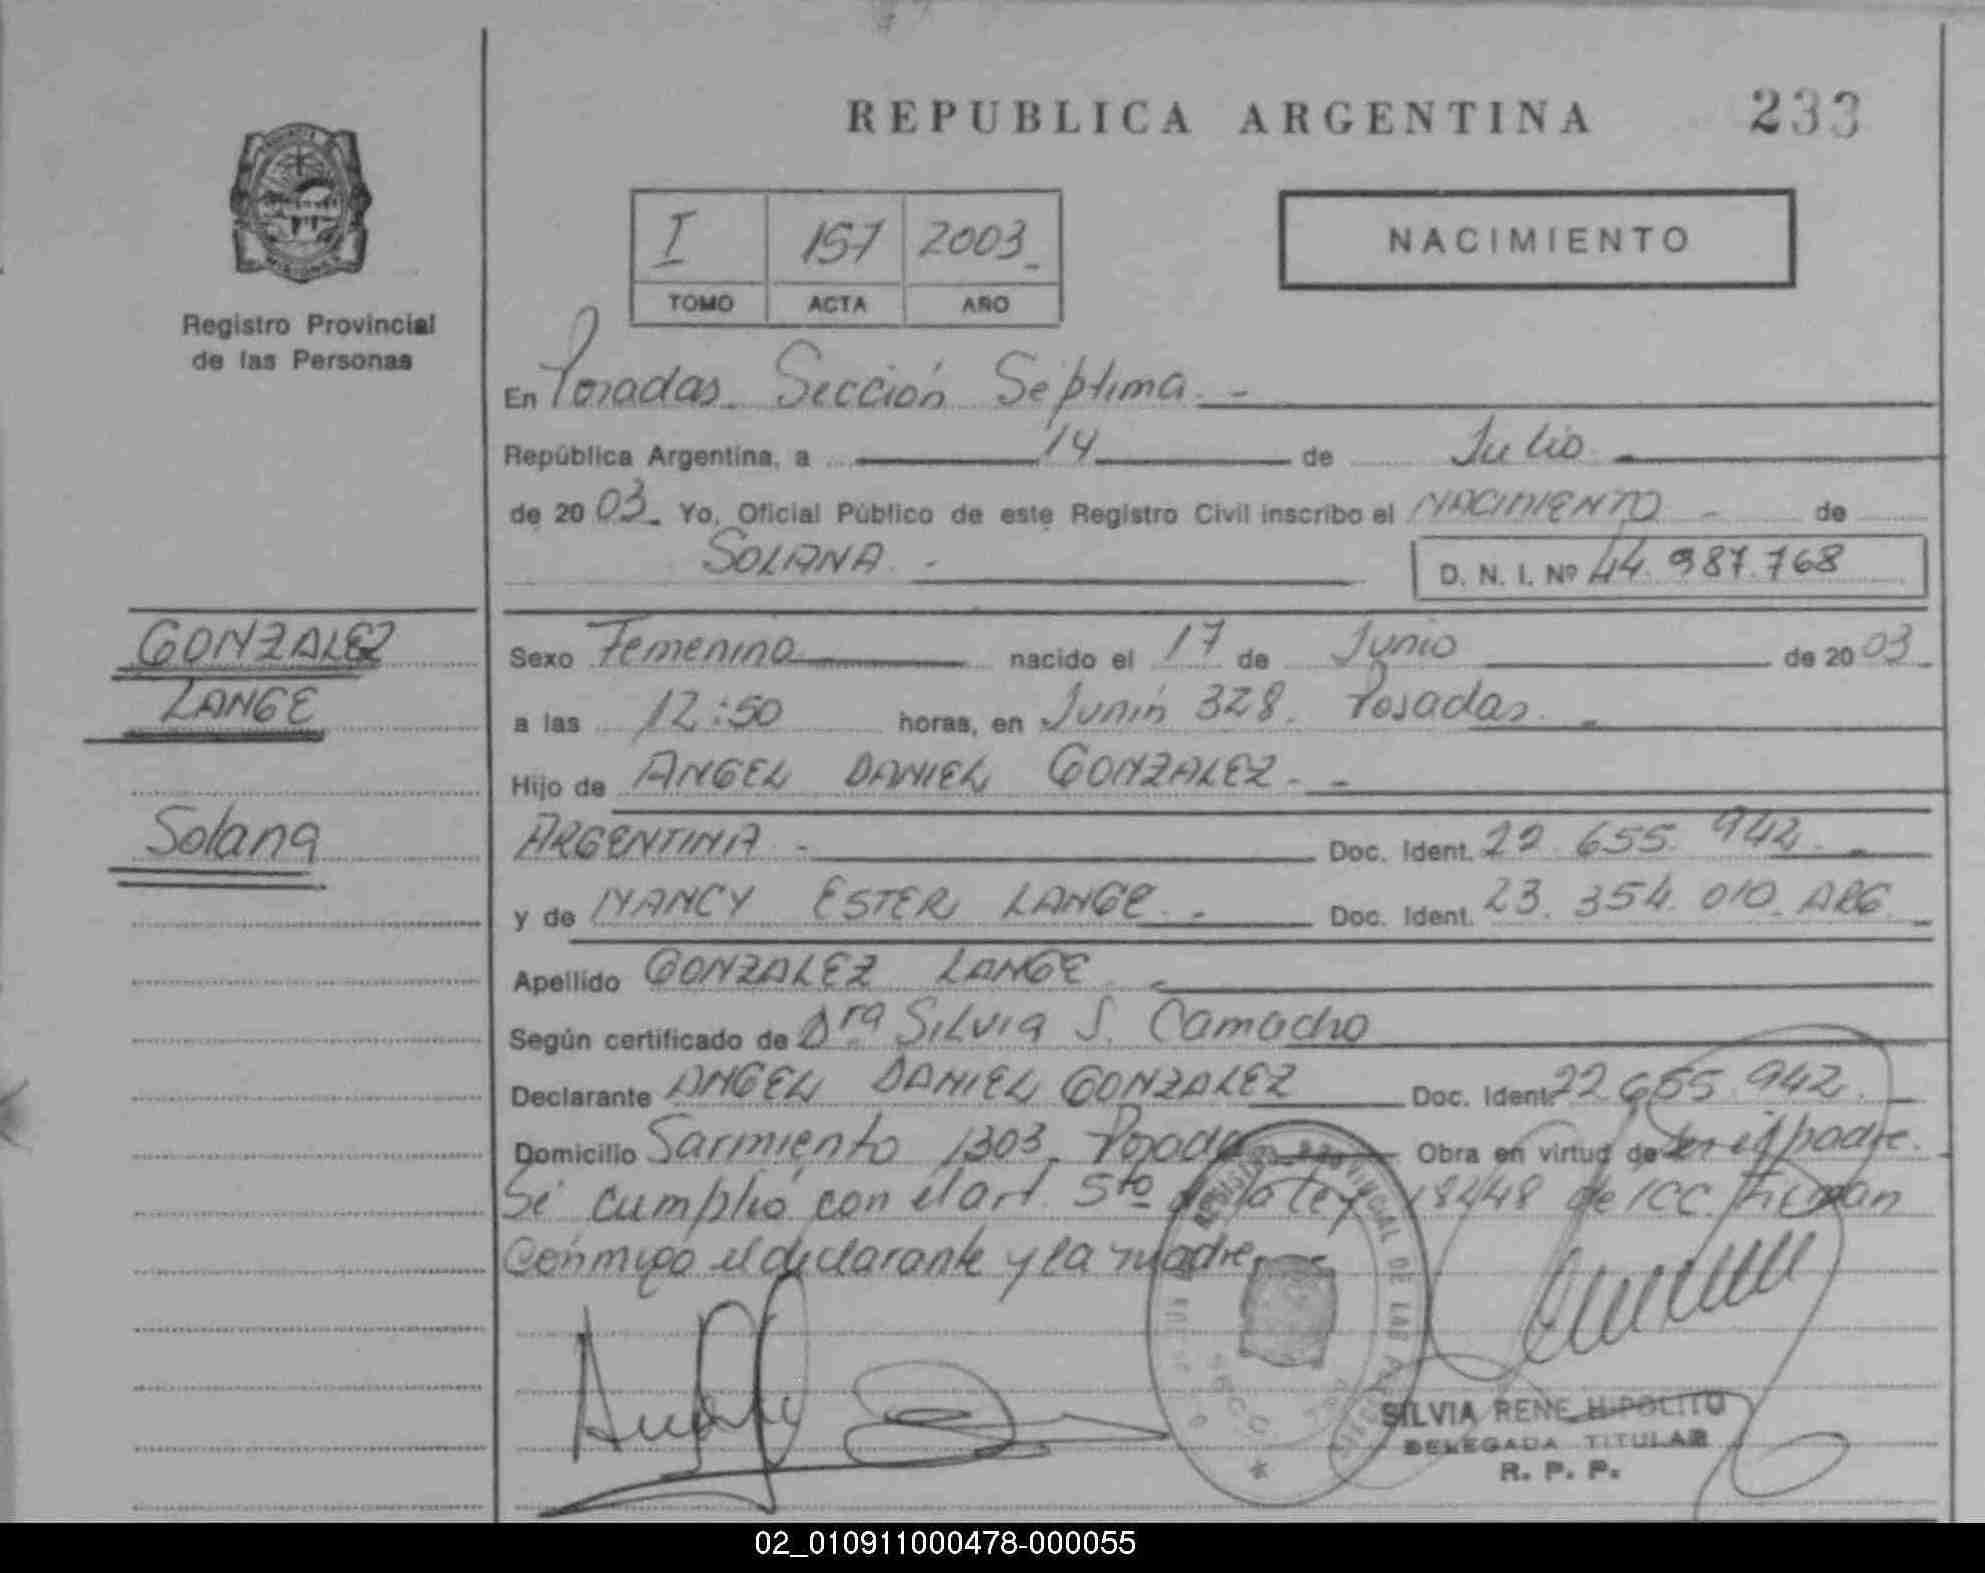 REPUBLICA ARGENTINA
233
Registro Provincial
de las Personas
I 157 2003
TOMO ACTA AÑO
NACIMIENTO
En Posadas Sección Séptima
República Argentina, a 14 de Julio
de 2003 Yo, Oficial Público de este Registro Civil inscribo el NACIMIENTO de
SOLANA D. N. I. Nº 44.987.768
GONZALEZ
LANGE
Solana
Sexo Femenino nacido el 17 de Junio de 2003
a las 12:50 horas, en Junin 328. Posadas.
Hijo de ANGEL DANIEL GONZALEZ
ARGENTINA Doc. Ident. 22.655.942
y de NANCY ESTER LANGE Doc. Ident. 23.354.010 ARG
Apellido GONZALEZ LANGE
Según certificado de Dra Silvia S. Camacho
Declarante ANGEL DANIEL GONZALEZ Doc. Ident. 22.655.942
Domicilio Sarmiento 1303 Posadas Obra en virtud de ser el padre.
Se cumplió con el art. 5to de la ley 18248 de ICC. firman
conmigo el declarante y la madre
REGISTRO PROVINCIAL DE LAS
SILVIA RENE HIPOLITO
DELEGADA TITULAR
R. P. P.
02_010911000478-000055